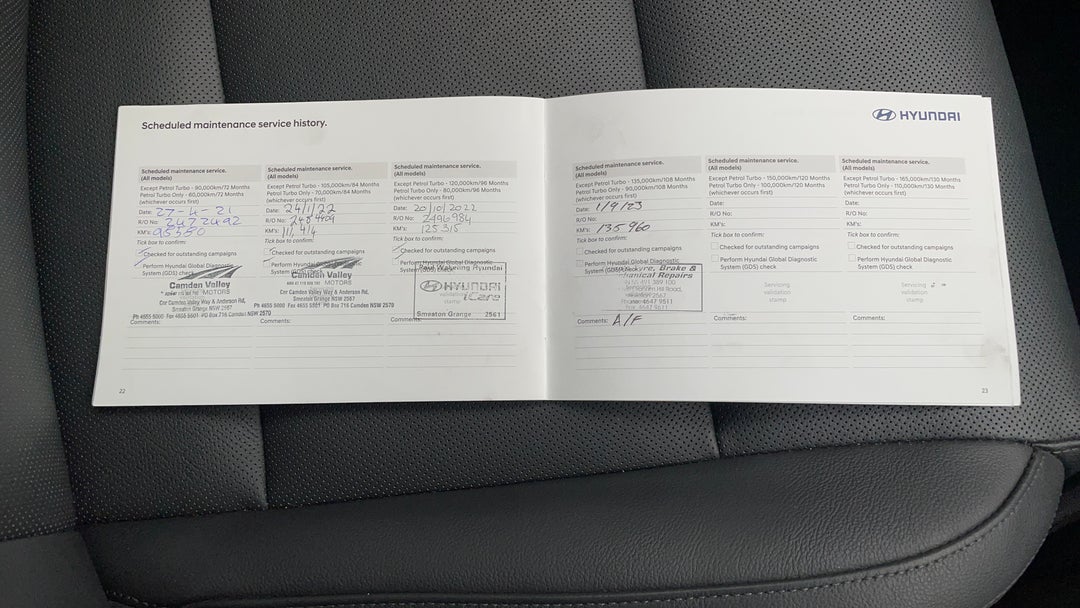 Scheduled maintenance service history.
HYUNDAI
Scheduled maintenance service.
(All models)
Except Petrol Turbo - 90,000km/72 Months
Petrol Turbo Only - 60,000km/72 Months
(whichever occurs first)
Date: 27-4-21
R/O No: 2472492
KM's: 95550
Tick box to confirm:
Checked for outstanding campaigns
Perform Hyundai Global Diagnostic
System (GDS) check
Camden Valley
MOTORS
Cnr Camden Valley Way & Anderson Rd,
Smeaton Grange NSW 2567
Ph 4655 5000 Fax 4655 5501 PO Box 716 Camden NSW 2570
Comments:
Scheduled maintenance service.
(All models)
Except Petrol Turbo - 105,000km/84 Months
Petrol Turbo Only - 70,000km/84 Months
(whichever occurs first)
Date: 24/1/22
R/O No:
KM's: 111,414
Tick box to confirm:
Checked for outstanding campaigns
Perform Hyundai Global Diagnostic
System (GDS) check
Camden Valley
MOTORS
Cnr Camden Valley Way & Anderson Rd,
Smeaton Grange NSW 2567
Ph 4655 5000 Fax 4655 5501 PO Box 716 Camden NSW 2570
Comments:
Scheduled maintenance service.
(All models)
Except Petrol Turbo - 120,000km/96 Months
Petrol Turbo Only - 80,000km/96 Months
(whichever occurs first)
Date: 20/10/2022
R/O No: 2496984
KM's: 125315
Tick box to confirm:
Checked for outstanding campaigns
Perform Hyundai Global Diagnostic
System
Hyundai
HYUNDAI
iCare
validation
stamp
Smeaton Grange 2567
Comments:
Scheduled maintenance service.
(All models)
Except Petrol Turbo - 135,000km/108 Months
Petrol Turbo Only - 90,000km/108 Months
(whichever occurs first)
Date: 1/9/23
R/O No:
KM's: 135960
Tick box to confirm:
Checked for outstanding campaigns
Perform Hyundai Global Diagnostic
System (GDS)
Tyre, Brake &
Mechanical Repairs
Comments: A/F
Scheduled maintenance service.
(All models)
Except Petrol Turbo - 150,000km/120 Months
Petrol Turbo Only - 100,000km/120 Months
(whichever occurs first)
Date:
R/O No:
KM's:
Tick box to confirm:
Checked for outstanding campaigns
Perform Hyundai Global Diagnostic
System (GDS) check
Servicing
validation
stamp
Comments:
Scheduled maintenance service.
(All models)
Except Petrol Turbo - 165,000km/130 Months
Petrol Turbo Only - 110,000km/130 Months
(whichever occurs first)
Date:
R/O No:
KM's:
Tick box to confirm:
Checked for outstanding campaigns
Perform Hyundai Global Diagnostic
System (GDS) check
Servicing
validation
stamp
Comments:
22
23